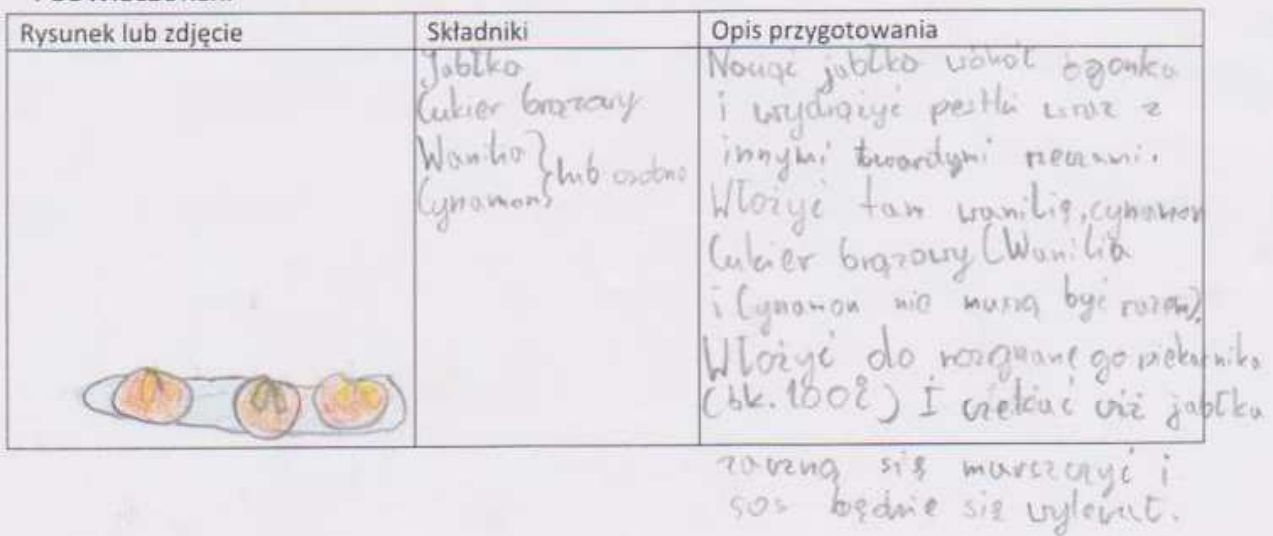 Rysunek lub zdjęcie
Składniki
Opis przygotowania
Jabłko
Cukier brązowy
Wanilia } lub osobno
Cynamon
jabłko wokół ogonka
i wydrążyć pestki wraz z
innymi twardymi rzeczami.
Włożyć tam wanilię, cynamon
Cukier brązowy (Wanilia
i Cynamon nie muszą być razem).
Włożyć do rozgrzanego piekarnika
I czekać jabłka
zaczną się marszczyć i
sos będzie się wylewał.